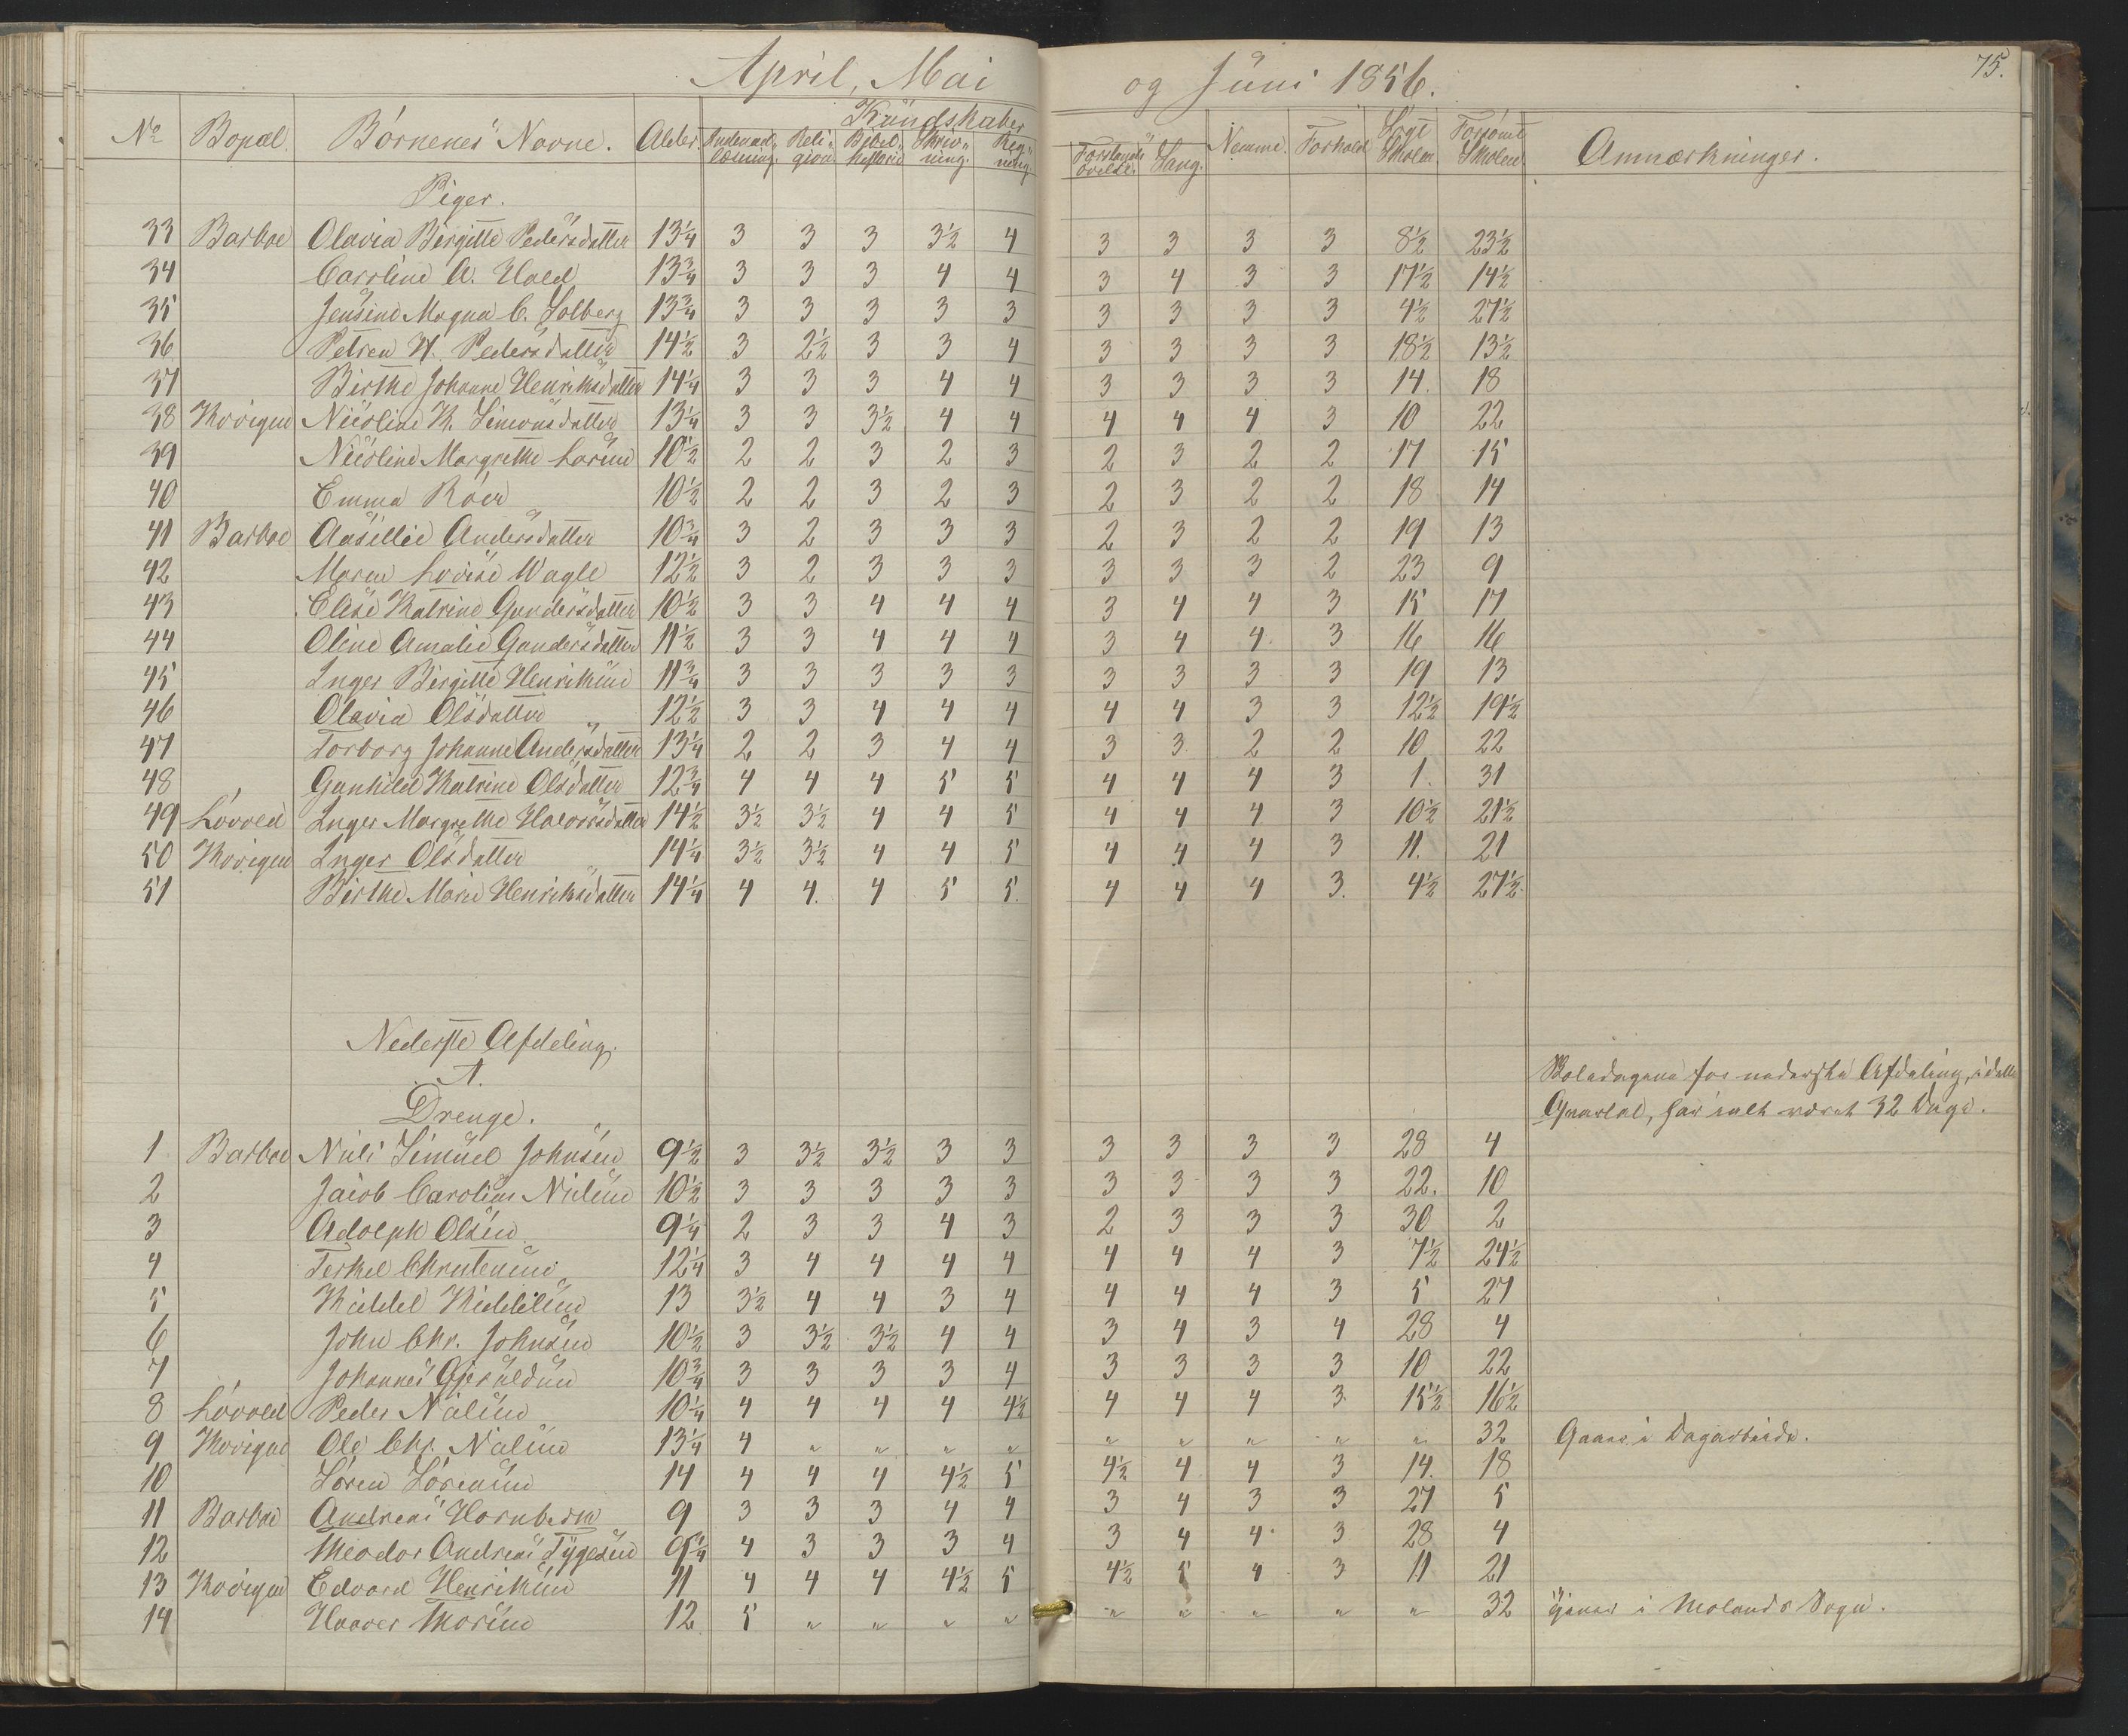 April, Mai og Juni 1856. 75.
Kundskaber
No Bopæl. Børnenes Navne. Alder. Indenad-læsning. Reli-gion. Bibel-historie Skriv-ning. Reg-ning Forstands-øvelse. Sang. Nemme. Forhold Søgt Skolen Forsømt Skolen Anmærkninger.
Piger.
33 Barboe Olavia Birgitte Pedersdatter 13¼ 3 3 3 3½ 4 3 3 3 3 8½ 23½
34 Caroline A. Hald 13¾ 3 3 3 4 4 3 4 3 3 17½ 14½
35 Jensine Magna C. Solberg 13¾ 3 3 3 3 3 3 3 3 3 4½ 27½
36 Petrea N. Pedersdatter 14½ 3 2½ 3 3 4 3 3 3 3 18½ 13½
37 Birthe Johanne Henriksdatter 14¼ 3 3 3 4 4 3 3 3 3 14. 18
38 Kovigen Nicoline K. Simonsdatter 13¼ 3 3 3½ 4 4 4 4 4 3 10 22
39 Nicoline Margrethe Larsen 10½ 2 2 3 2 3 2 3 2 2 17 15
40 Emma Röer 10½ 2 2 3 2 3 2 3 2 2 18 14
41 Barboe Aasillie Andersdatter 10¾ 3 2 3 3 3 2 3 2 2 19 13
42 Maren Lovise Wagle 12½ 3 2 3 3 3 3 3 3 2 23 9
43 Elise Katrine Gundersdatter 10½ 3 3 4 4 4 3 4 4 3 15 17
44 Oline Amalie Gundersdatter 11½ 3 3 4 4 4 3 4 4. 3 16 16
45 Inger Birgitte Henriksen 11¾ 3 3 3 3 3 3 3 3 3 19 13
46 Olavia Olsdatter 12½ 3 3 4 4 4 4 4 3 3 12½ 19½
47 Torborg Johanne Andersdatter 13¼ 2 2 3 4 4 3 3 2 2 10 22
48 Gunhild Katrine Olsdatter 12¾ 4 4 4 5 5 4 4 4 3 1. 31
49 Lövold Inger Margrethe Halvorsdatter 14½ 3½ 3½ 4 4 5 4 4 4 3 10½ 21½
50 Kovigen Inger Olsdatter 14¼ 3½ 3½ 4 4 5 4 4 4 3 11. 21
51 Birthe Marie Henriksdatter 14¼ 4 4. 4 5 5. 4 4 4 3. 4½ 27½.
Nederste Afdeling.
A.
Drenge.
Skoledagene for nederste Afdeling, i dette
Qvartal, har ialt været 32 Dage.
1 Barboe Nils Simuel Johnsen 9½ 3 3½ 3½ 3 3 3 3 3 3 28 4
2 Jacob Carolius Nielsen 10½ 3 3 3 3 3 3 3 3 3 22. 10
3 Adolph Olsen 9¼ 2 3 3 4 3 2 3 3 3 30 2
4 Terkel Christensen 12¼ 3 4 4 4 4 4 4 4 3 7½ 24½
5 Kiddel Kiddelsen 13 3½ 4 4 3 4 4 4 4 3 5 27
6 John Chr. Johnsen 10½ 3 3½ 3½ 4 4 3 4 3 4 28 4
7 Johannes Gjeruldsen 10¾ 3 3 3 3 4 3 3 3 3 10 22
8 Lövold Peder Nielsen 10¼ 4 4 4 4 4½ 4 4 4 3. 15½ 16½
9 Kovigen Ole Chr. Nielsen 13¼ 4 " " " " " " " " " 32 Gaaer i Dagarbeide.
10 Sören Sörensen 14 4 4 4 4½ 5 4½ 4 4 3 14. 18
11 Barboe Andreas Hornborn 9 3 3 3 4 4 3 4 3 3 27 5
12 Theodor Andreas Tygesen 9¼ 4 3 3 3 4 3 4 4. 3 28 4
13 Kovigen Edvard Henriksen 11 4 4 4 4½ 5 4½ 5 4 3 11 21
14 Haaver Thorsen 12 5 " " " " " " " " " 32 i Molands Sogn.